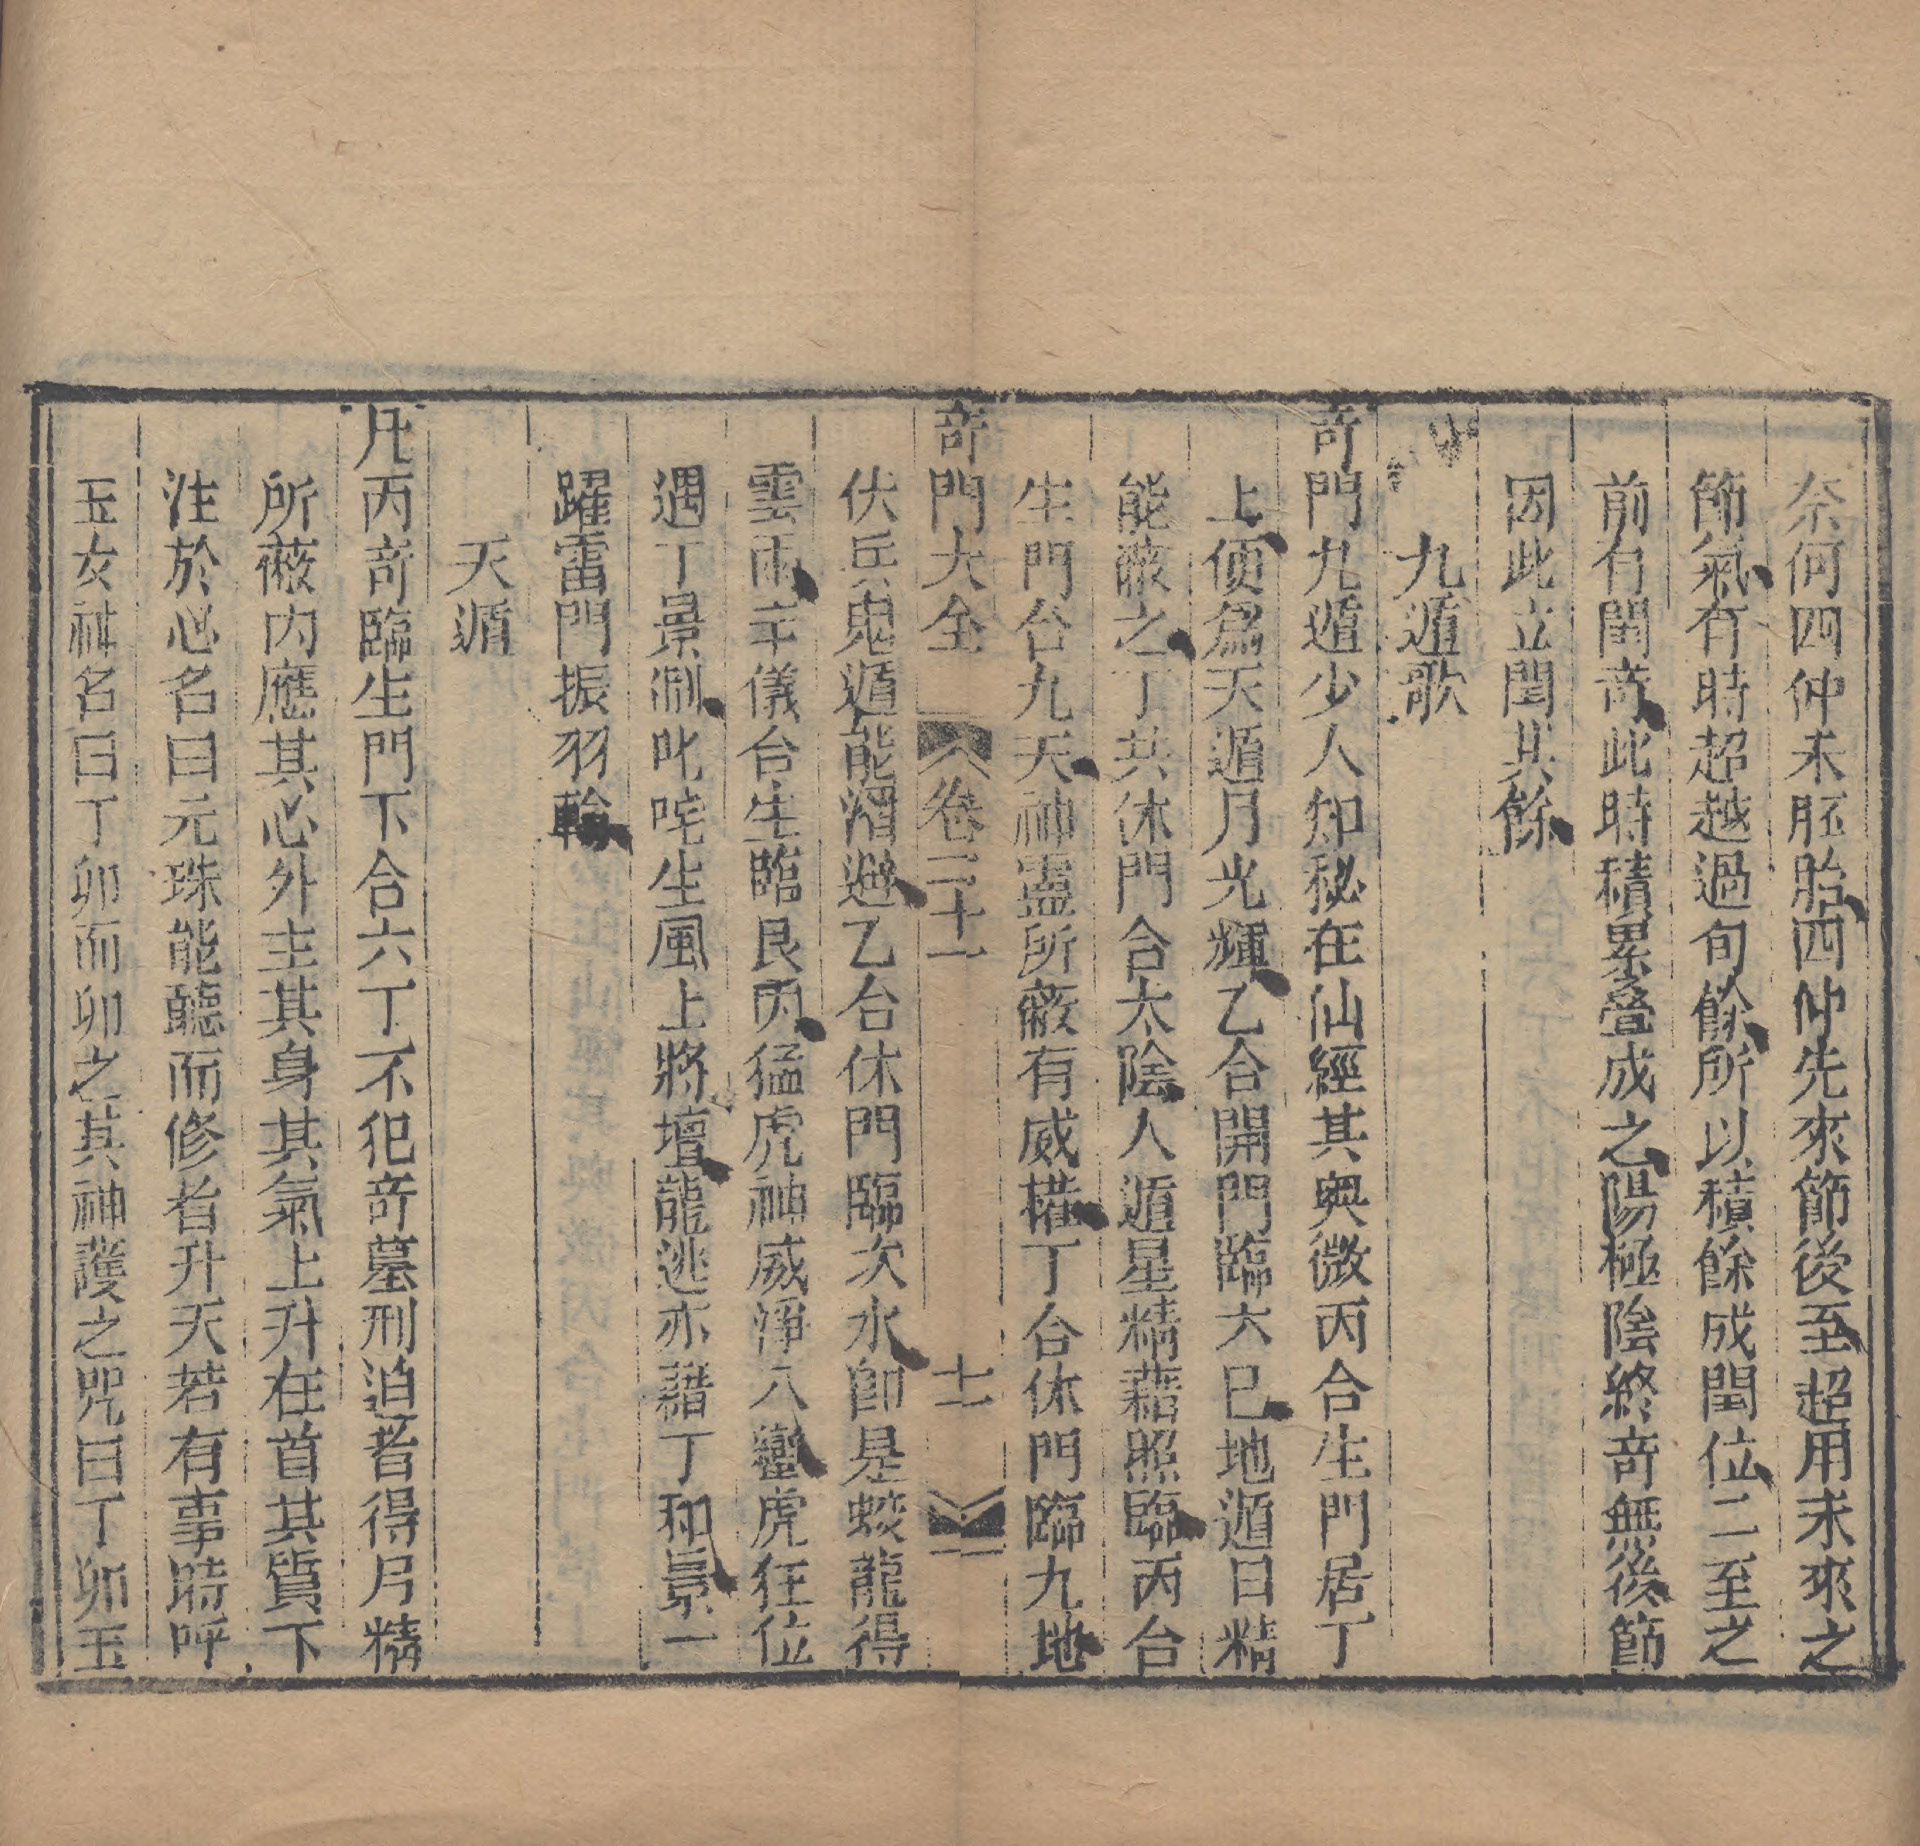 奈何四仲未胚胎四仲先來節後至超用未來之
節氣有時超越過旬餘所以積餘成閏位二至之
前有閏奇此時積累叠成之陽極陰終奇無後節
因此立閏其餘
九遁歌
奇門九遁少人知秘在仙經其奥微丙合生門居丁
上便爲天遁月光輝乙合開門臨六巳地遁日精
能蔽之丁共休門合太陰人遁星精藉照臨丙合
生門合九天神靈所蔽有威權丁合休門臨九地
奇門大全
卷二十一
十一
伏兵鬼遁能潛避乙合休門臨次水卽是蛟龍得
雲雨辛儀合生臨艮丙猛虎神威淨八蠻虎狂位
遇丁景測叱咤生風上將壇龍逃亦藉丁和景一
躍雷門振羽翰
天遁
凡丙奇臨生門下合六丁不犯奇墓刑迫者得月精
所蔽内應其心外主其身其氣上升在首其質下
注於心名曰元珠能聽而修者升天若有事時呼
玉女神名曰丁卯而卯之其神護之咒曰丁卯玉